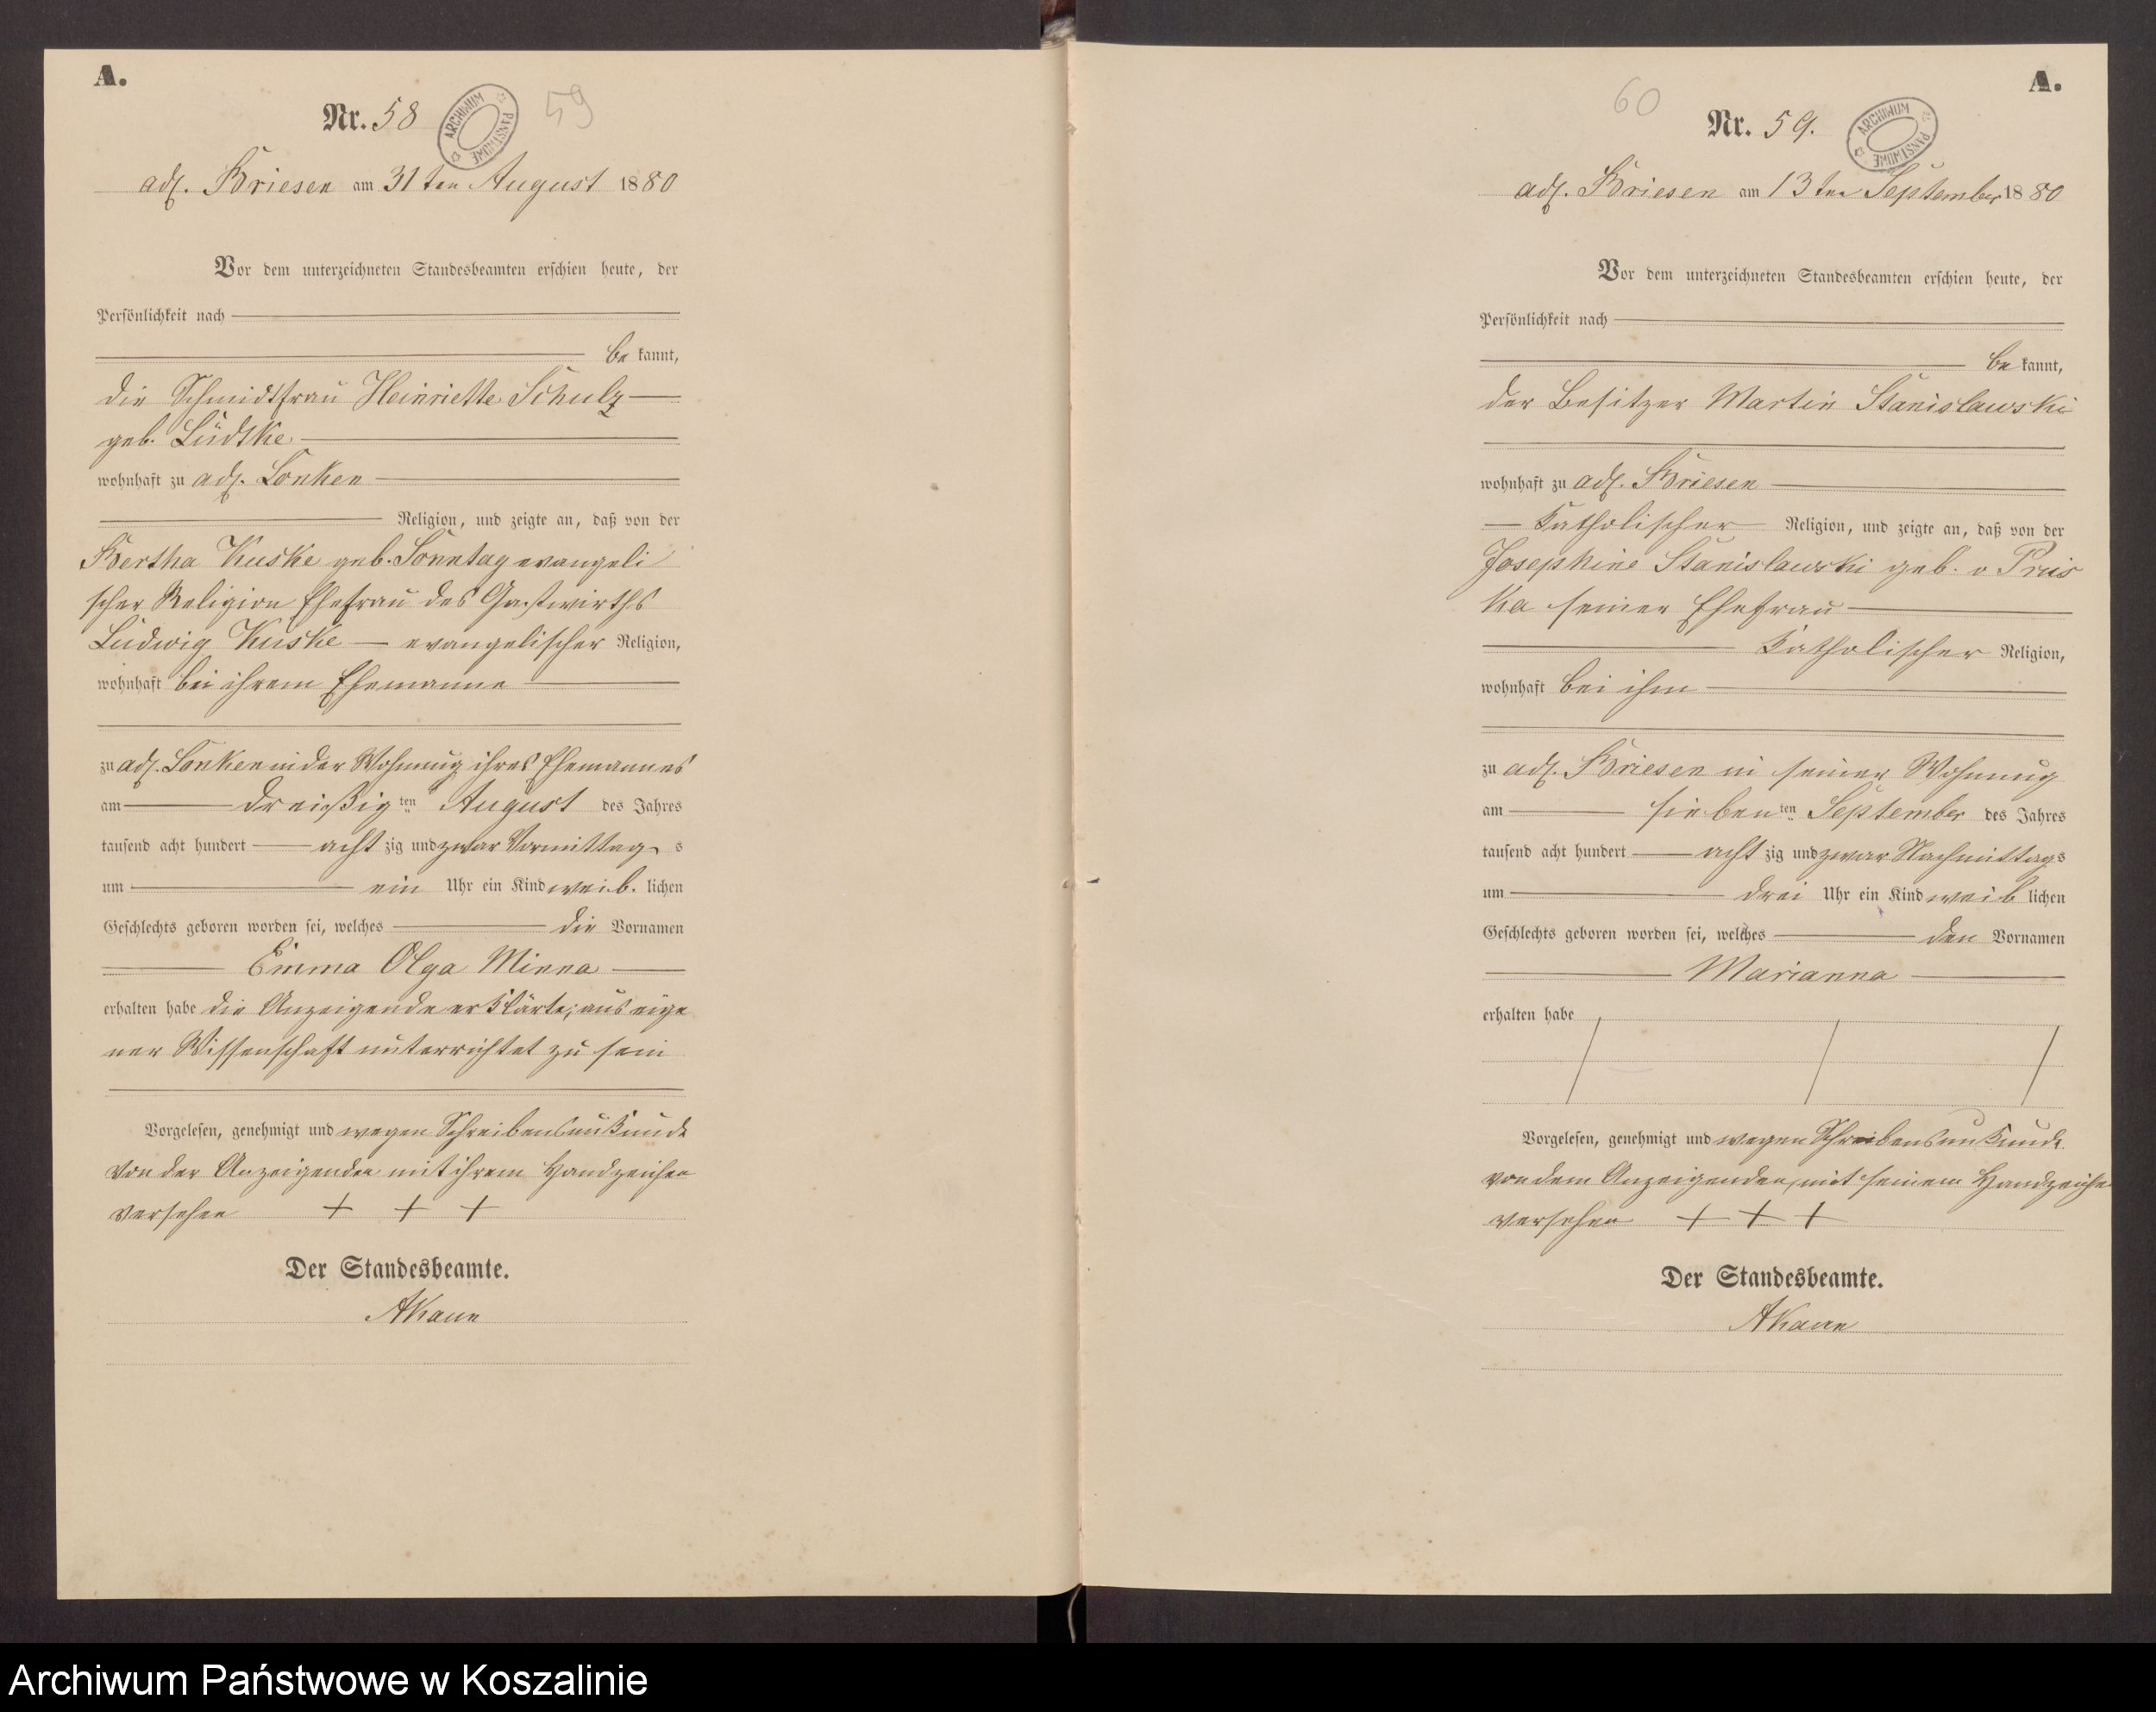 A.
Nr. 58
59
ARCHIWUM PAŃSTWOWE
adl. Briesen am 31ten August 1880
Vor dem unterzeichneten Standesbeamten erschien heute, der
Persönlichkeit nach
be kannt,
die Schmidtfrau Heinriette Schulz
geb. Lüdtke
wohnhaft zu adl. Lonken
Religion, und zeigte an, daß von der
Bertha Kuske geb. Sonntag evangeli
scher Religion Ehefrau des Gastwirths
Ludwig Kuske evangelischer Religion,
wohnhaft bei ihrem Ehemanne
zu adl. Lonken in der Wohnung ihres Ehemannes
am dreißigten August des Jahres
tausend acht hundert achtzig und zwar Vormittags
um ein Uhr ein Kind weib. lichen
Geschlechts geboren worden sei, welches die Vornamen
Emma Olga Minna
erhalten habe die Anzeigende erklärte, aus eige
ner Wissenschaft unterrichtet zu sein
Vorgelesen, genehmigt und wegen Schreibensunkunde
von der Anzeigenden mit ihrem Handzeichen
versehen + + +
Der Standesbeamte.
A.
60
Nr. 59.
ARCHIWUM PAŃSTWOWE
adl. Briesen am 13ten September 1880
Vor dem unterzeichneten Standesbeamten erschien heute, der
Persönlichkeit nach
be kannt,
der Besitzer Martin Stanislawski
wohnhaft zu adl. Briesen
katholischer Religion, und zeigte an, daß von der
Josephine Stanislawski geb. v Prus
ka seiner Ehefrau
katholischer Religion,
wohnhaft bei ihm
zu adl. Briesen in seiner Wohnung
am siebenten September des Jahres
tausend acht hundert achtzig und zwar Nachmittags
um drei Uhr ein Kind weiblichen
Geschlechts geboren worden sei, welches den Vornamen
Marianna
erhalten habe
Vorgelesen, genehmigt und wegen Schreibensunkunde
von dem Anzeigenden, mit seinem Handzeichen
versehen + + +
Der Standesbeamte.
Archiwum Państwowe w Koszalinie